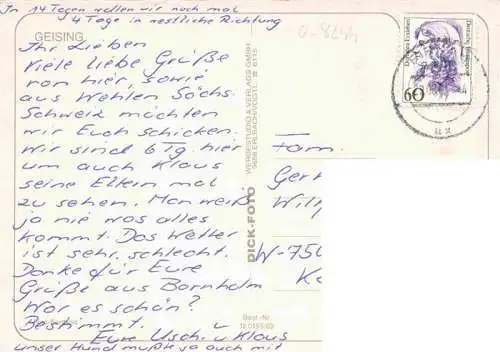 In 14 Tagen wollen wir noch mal
4 Tage in westliche Richtung
GEISING
Ihr Lieben
Viele liebe Grüße
von hier, sowie
aus Wehlen Sächs.
Schweiz möchten
wir Euch schicken.
Wir sind 6 Tg. hier
um auch Klaus
seine Eltern mal
zu sehen. Man weiß
ja nie was alles
kommt. Das Wetter
ist sehr, schlecht.
Danke für Eure
Grüße aus Bornholm
War es schön?
Bestimmt.
Eure Usch. u Klaus
unser Hund mußte ja auch mit
DICK-FOTO
WERBESTUDIO & VERLAGS GMBH
9659 ERLBACH/VOGTL.
Best.-Nr.
60
Deutsche Bundespost
Fam.
Ger
Wil
W-750